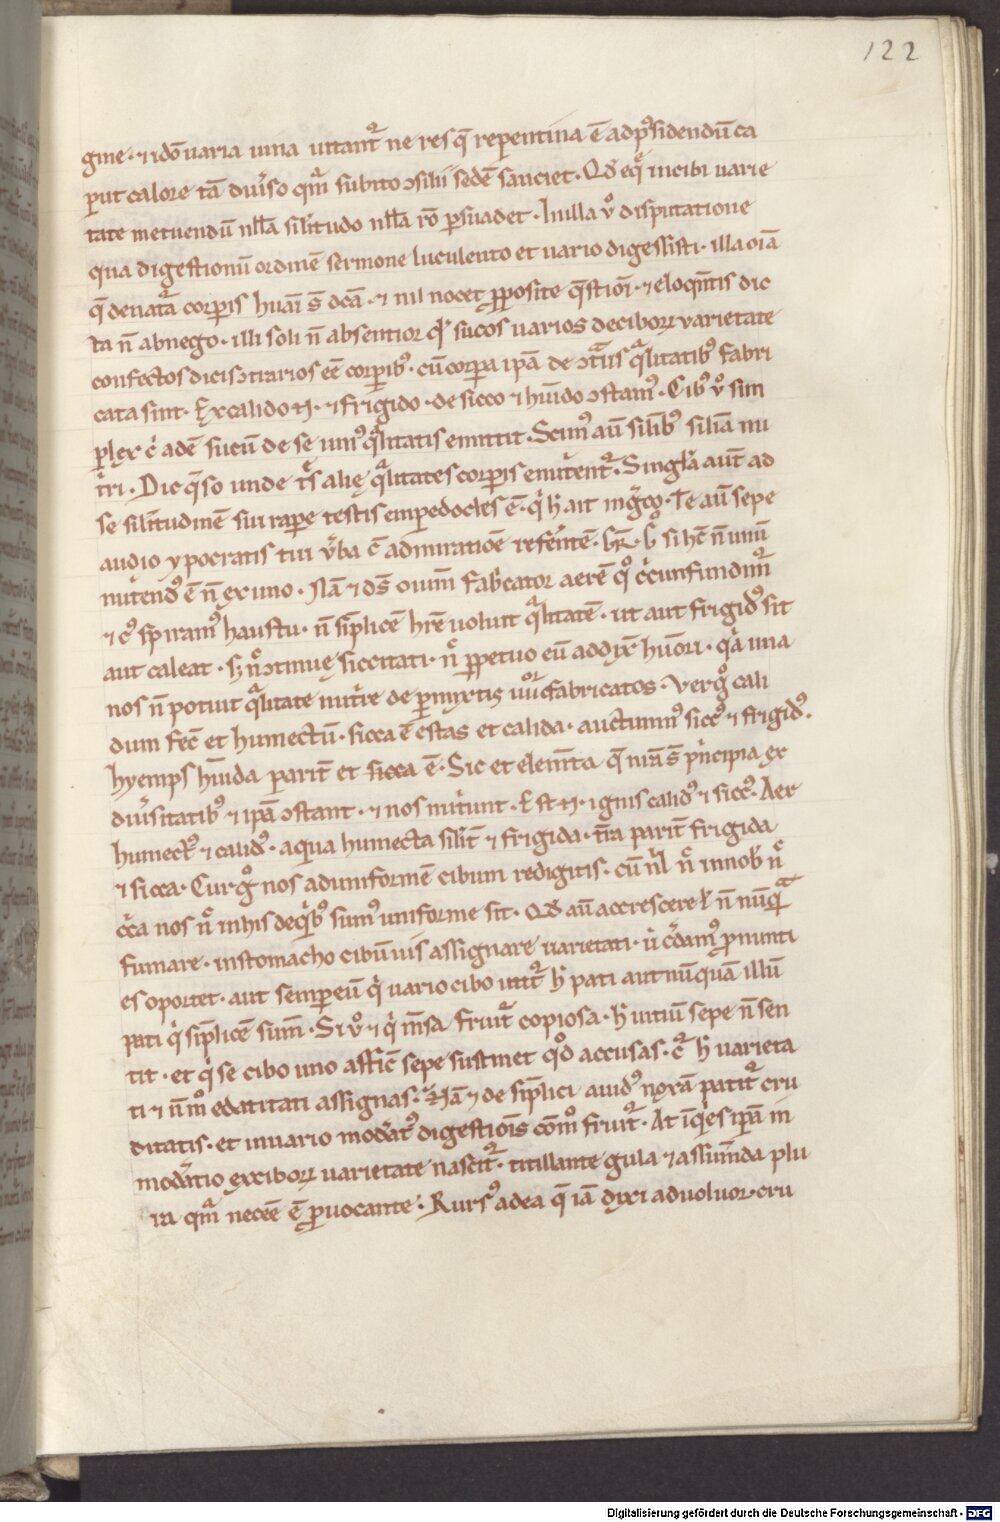 122
gine · ⁊ idō uaria uina uitant᷑ ne res q̄ repentina ē ad p̄sidendū ca
put calore tā diu͛so qm̄ subito ɔsilii sedē sauciet · Qd̄ eq̄ in cibi uarie
tate metuendū nll̄a silitudo nll̄a rō p̱suadet · In illa ů disputatione
qua digestionū ordinē sermone luculento et uario digessisti · illa oīa
q̄ de nat᷑a corp̱is huāi s̄ dc̄ā · ⁊ nil nocet p̱posite q̄stiōi · ⁊ eloq̄nt̄is dic
ta n̄ abnego · illi soli n̄ absentior qd̓ sucos uarios de ciboꝝ uarietate
confectos dicis ɔtrarios eē corp̱ibꝰ · cū corpa ip̄a de ɔt͛iis q̓litatibꝰ fabri
cata sint · Ex calido n̄ · ⁊ frigido · de sicco ⁊ hūido ɔstamꝰ · Cibꝰ ů sim
plex c̓ adē sucū de se uniꝰ q̓litatis emittit · Scimꝰ aū silibꝰ siliā nu
t̓ri · Dic q̄so unde t͛s alię q̓litates corp̱is enut̓ent᷑ · Singl̓a aūt ad
se silitudinē sui rape testis empedocles ē · q̓ h̄ ait
audio ypocratis tui ůba c̄ admiratiōe referentē ·
nut̓endꝰ ē n̄ ex uno · Nā ⁊ ds̄ oīum fab̓cator aerē qͦ c̓cunfundim᷑
⁊ cꝰ spiramꝰ haustu · n̄ siplicē hr̄e uoluit q̓litatē · ut aut frigidꝰ sit
aut caleat · sꝫ nͨ ɔtinuę siccitati · nͨ p̱petuo eū addix̄ hūori · q̓a una
nos n̄ potuit q̓litate nut̓re de p̱mixtis fabricatos · Ver gͦ cali
dum fec̄ et humectū · sicca ē estas et calida · auctumnꝰ siccꝰ ⁊ frigidꝰ ·
hyemps hūida parit̄ et sicca ē · Sic et elem̄ta q̄ nr̄a s̄ p̓ncipia ex
diu͛sitatibꝰ ⁊ ip̄a ɔstant · ⁊ nos nut̓unt · Est n̄ · ignis calidꝰ ⁊ siccꝰ · Aer
humectꝰ ⁊ calidꝰ · aqua humecta silit̄ ⁊ frigida · t̄ra parit̄ frigida
⁊ sicca · Cur gͦ nos ad uniformē cibum redigitis · cū n̓l nͨ in nob̓ nͨ
c̓ca nos nͨ in his de q̓bꝰ sumꝰ uniforme sit · Qd̄ aū accrescere l̓ n̄ nūq̓
fumare · in stomacho cibū uis assignare uarietati · u̓ c̓damꝰ p̱nunti
es oportet · aut semp eū q̓ uario cibo utit᷑ h̄ pati aut nūquā illū
pati q̓ siplicē sum̄ · Si ů ⁊ q̓ m̄sa fruit᷑ copiosa · h̄ uitiū sepe n̄ sen
tit · et q̓ se cibo uno affic̄ sepe sustinet qd̓ accusas · c᷑ h̄ uarieta
ti ⁊ n̄ mͦ edatitati assignas · Nā ⁊ de siplici auidꝰ noxā patit᷑ cru
ditatis · et in uario moderatꝰ digestiōis cōmͦ fruit᷑ · At īq̓es ip̄a in
mod͛atio ex ciboꝝ uarietate nascit᷑ · titillante gula ⁊ assum̄da plu
ra qm̄ necēe ē p̱uocante · Rursꝰ ad ea q̄ iā dixi aduoluor · cru
Digitalisierung gefördert durch die Deutsche Forschungsgemeinschaft · DFG